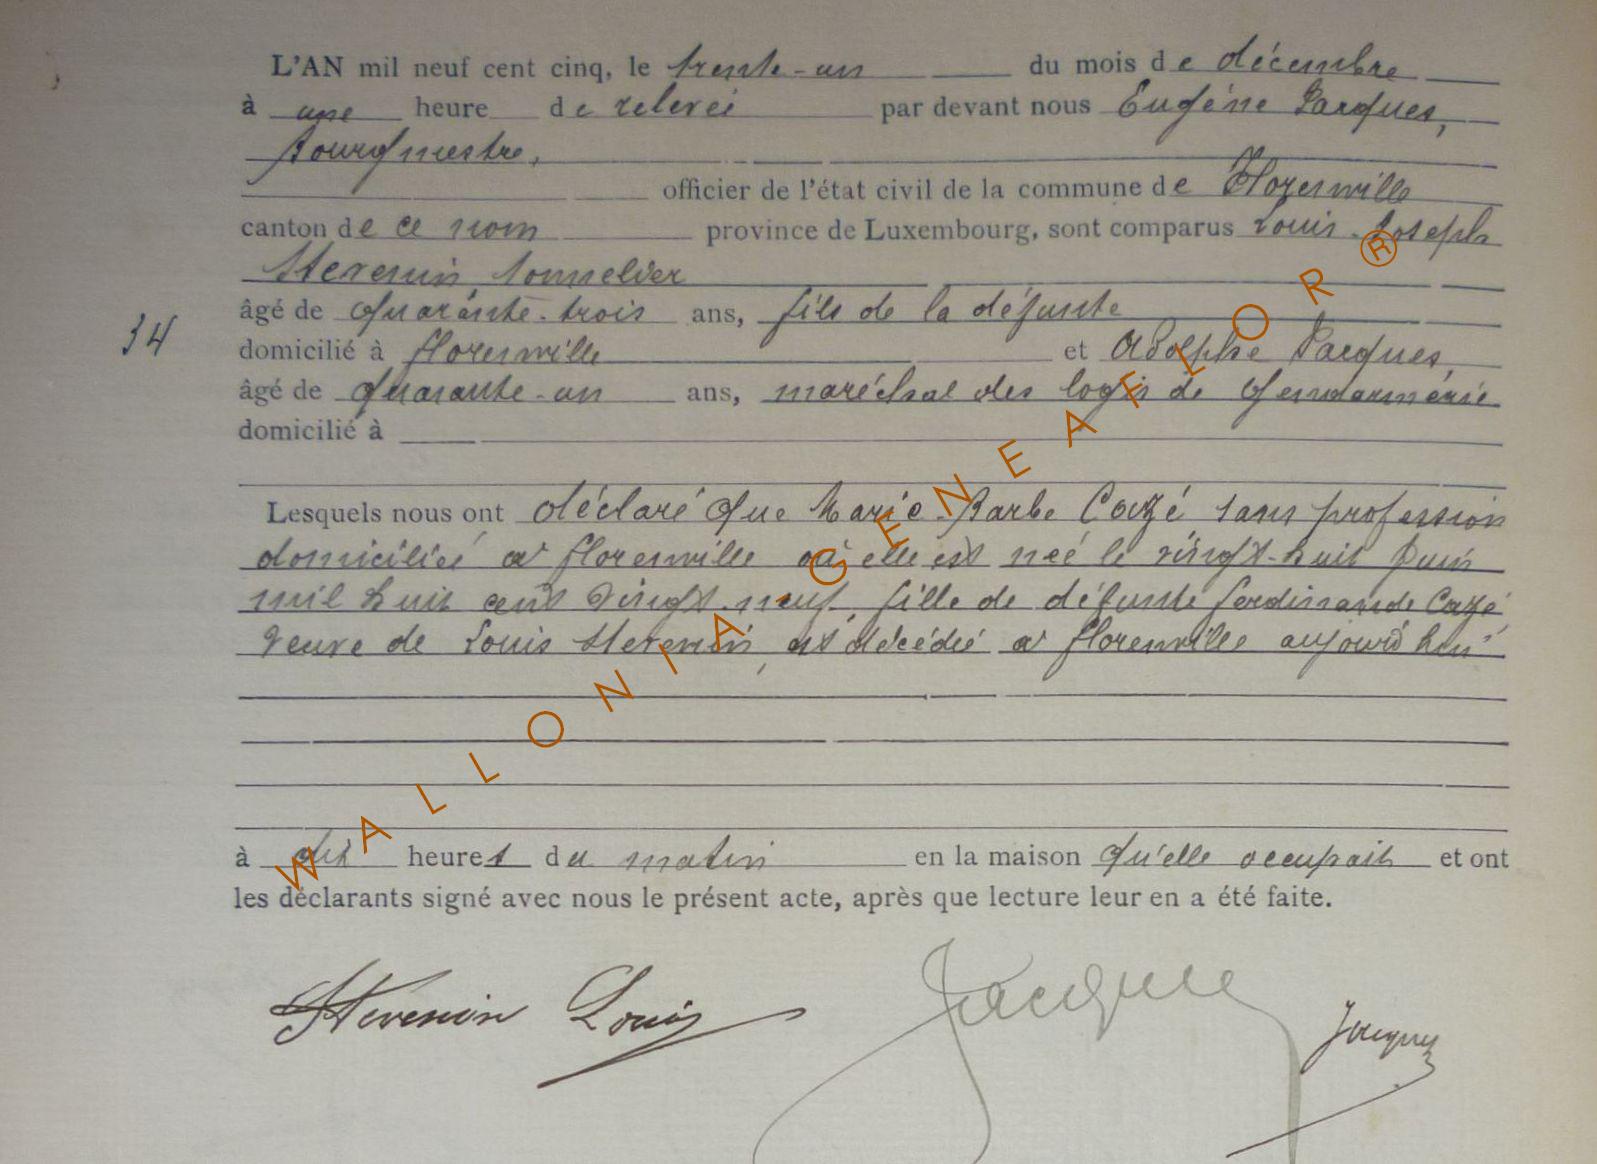 L'AN mil neuf cent cinq, le trente-un du mois de décembre
à une heure de relevée par devant nous Eugène Jacques,
Bourgmestre,
officier de l'état civil de la commune de Florenville
canton de ce nom province de Luxembourg, sont comparus Louis-Joseph
Stevenin, tonnelier
âgé de quarante-trois ans, fils de la défunte
34
domicilié à Florenville et Adolphe Jacques,
âgé de quarante-un ans, maréchal des logis de gendarmerie
domicilié à
Lesquels nous ont déclaré que Marie-Barbe Cozé sans profession
domiciliée à Florenville où elle est née le vingt-huit Juin
mil huit cent vingt-neuf, fille de défunte Ferdinande Cozé,
veuve de Louis Stevenin, est décédée à Florenville aujourd'hui
à dix heures du matin en la maison qu'elle occupait et ont
les déclarants signé avec nous le présent acte, après que lecture leur en a été faite.
Stevenin Louis Jacques Jacques
WALLONIA-GENEAFLOR®